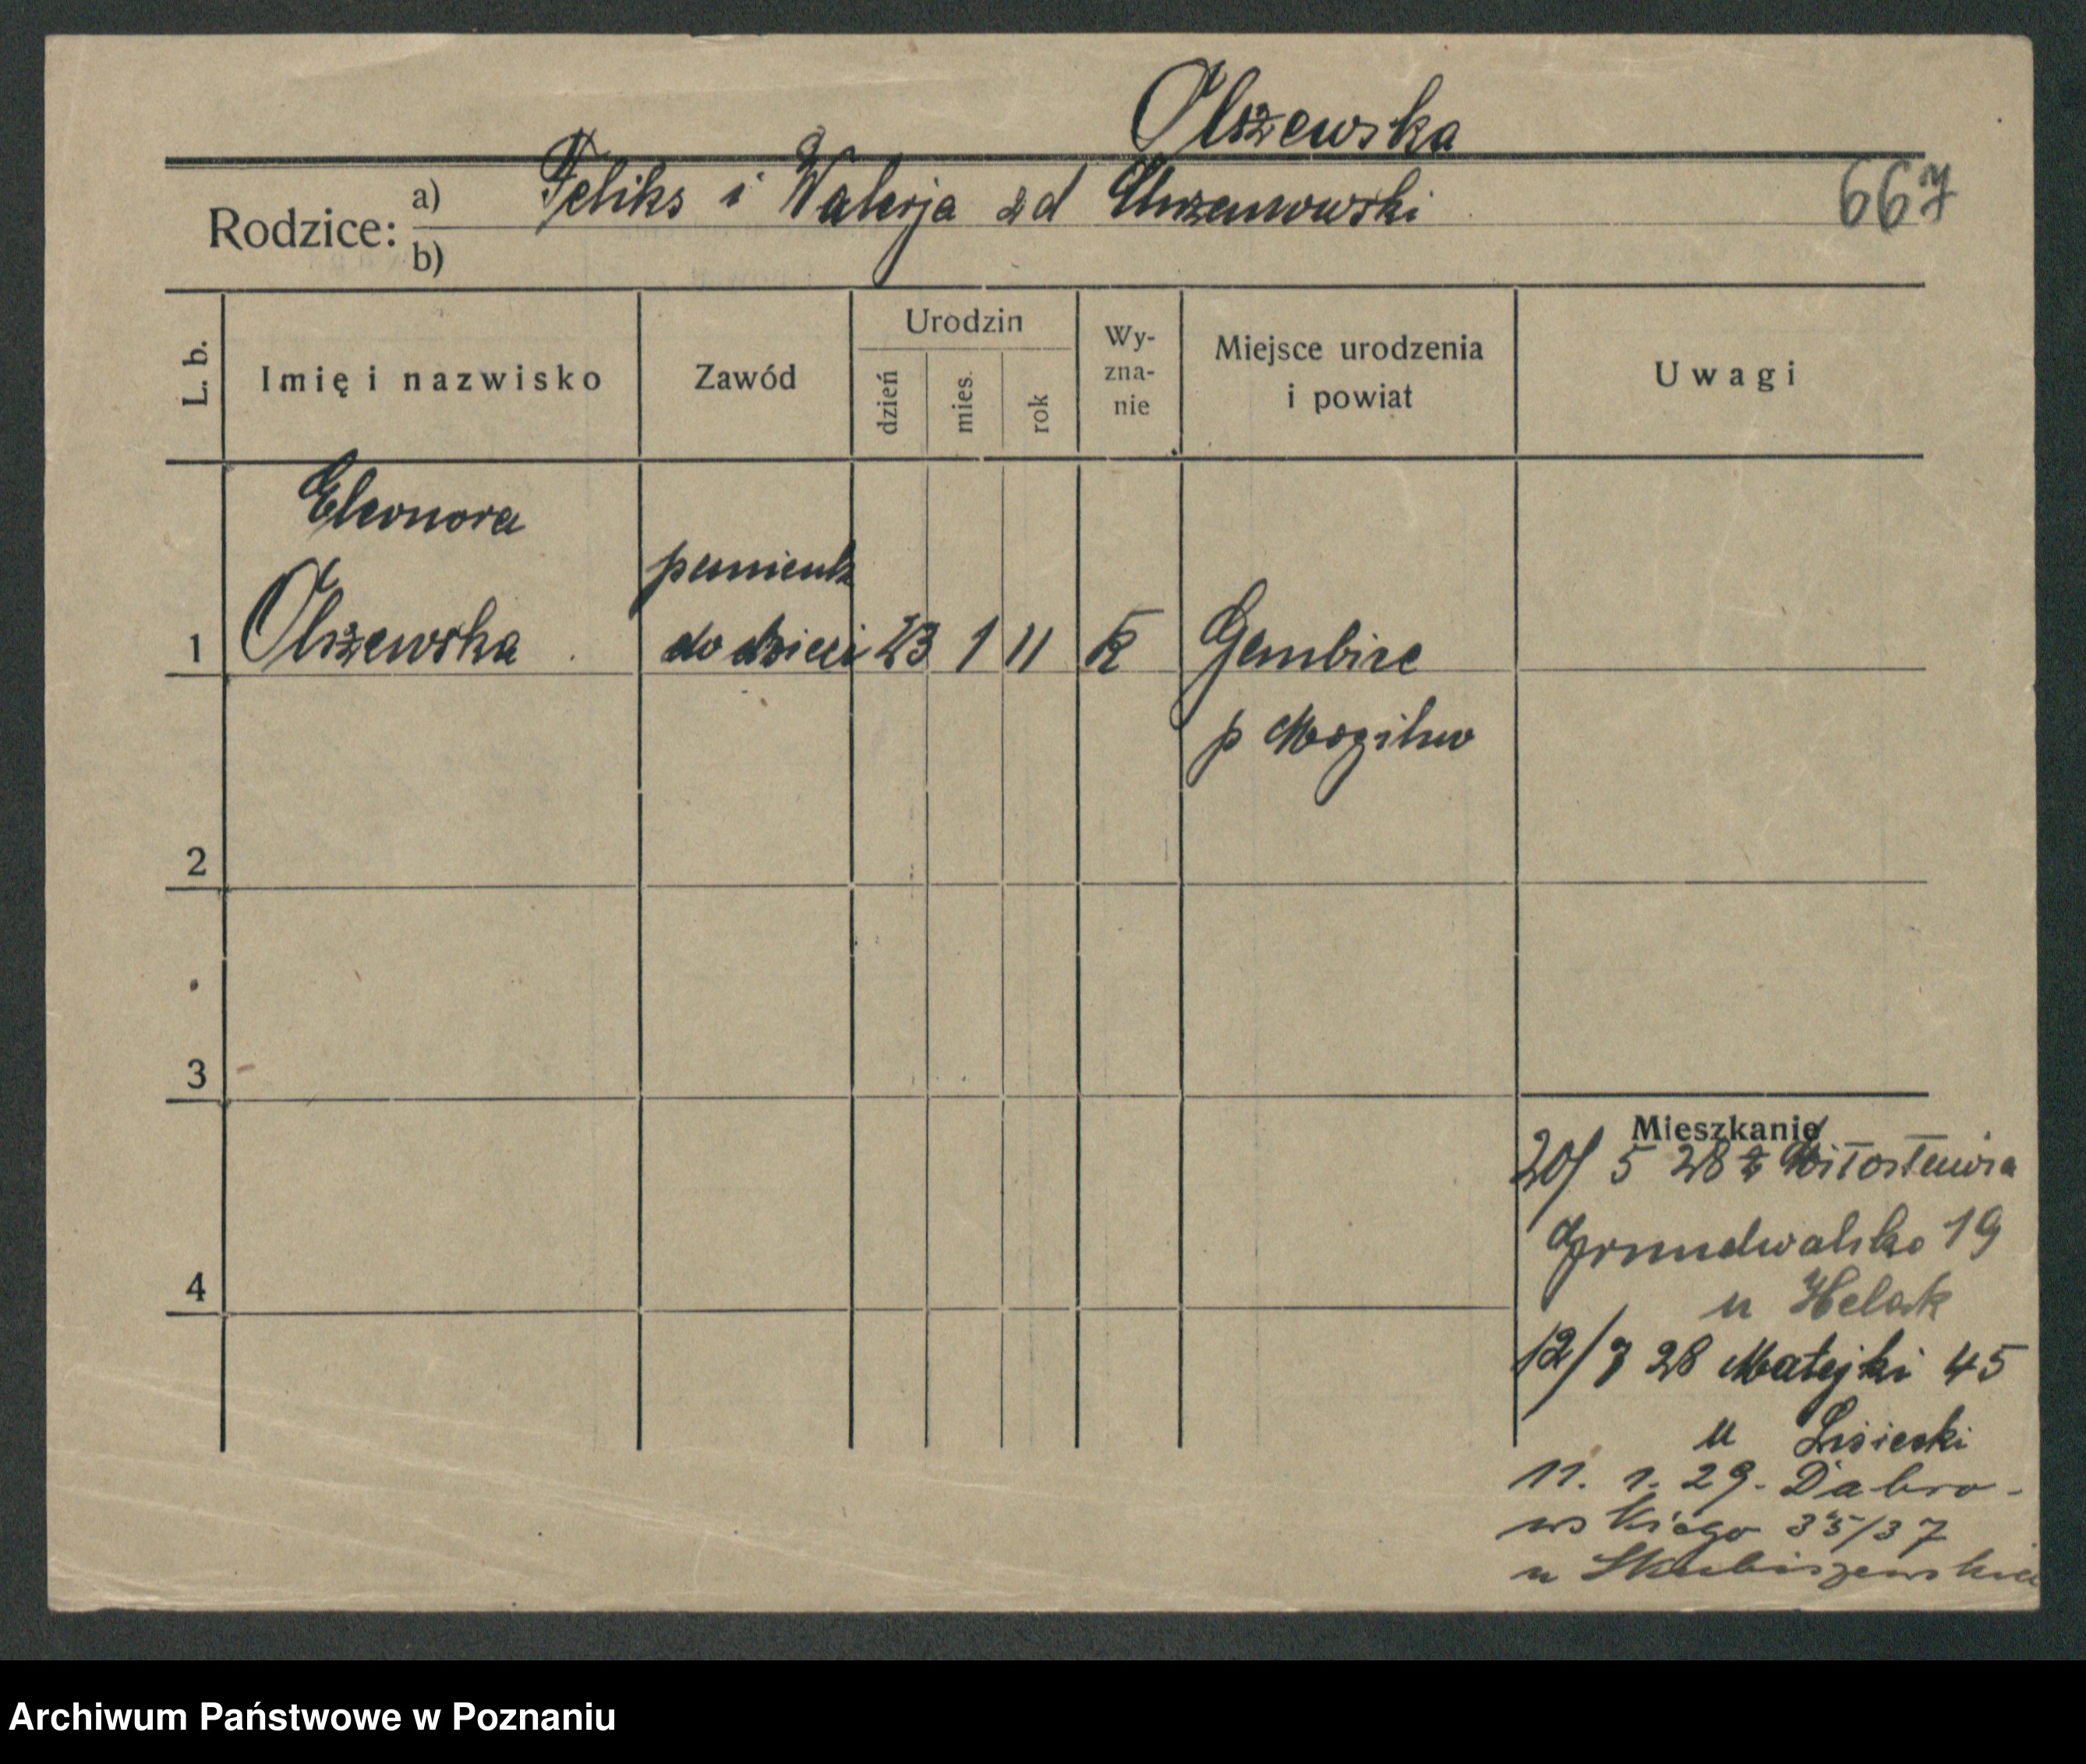 Olszewska
Rodzice: a) Feliks i Walerja zd Chrzanowski
667
b)
L. b.
Imię i nazwisko
Zawód
Urodzin
dzień
mies.
rok
Wy-
zna-
nie
Miejsce urodzenia
i powiat
Uwagi
Eleonora
panienk
1 Olszewska do dzieci 23 1 11 K Gembice
p Mogilno
2
3
4
Mieszkanie
20/5 28 z
Grunwaldzka 19
u Helak
12/7 28 Matejki 45
u Lisiecki
11. 1. 29. Dabro-
wskiego 35/37
u Skubiszewska
Archiwum Państwowe w Poznaniu